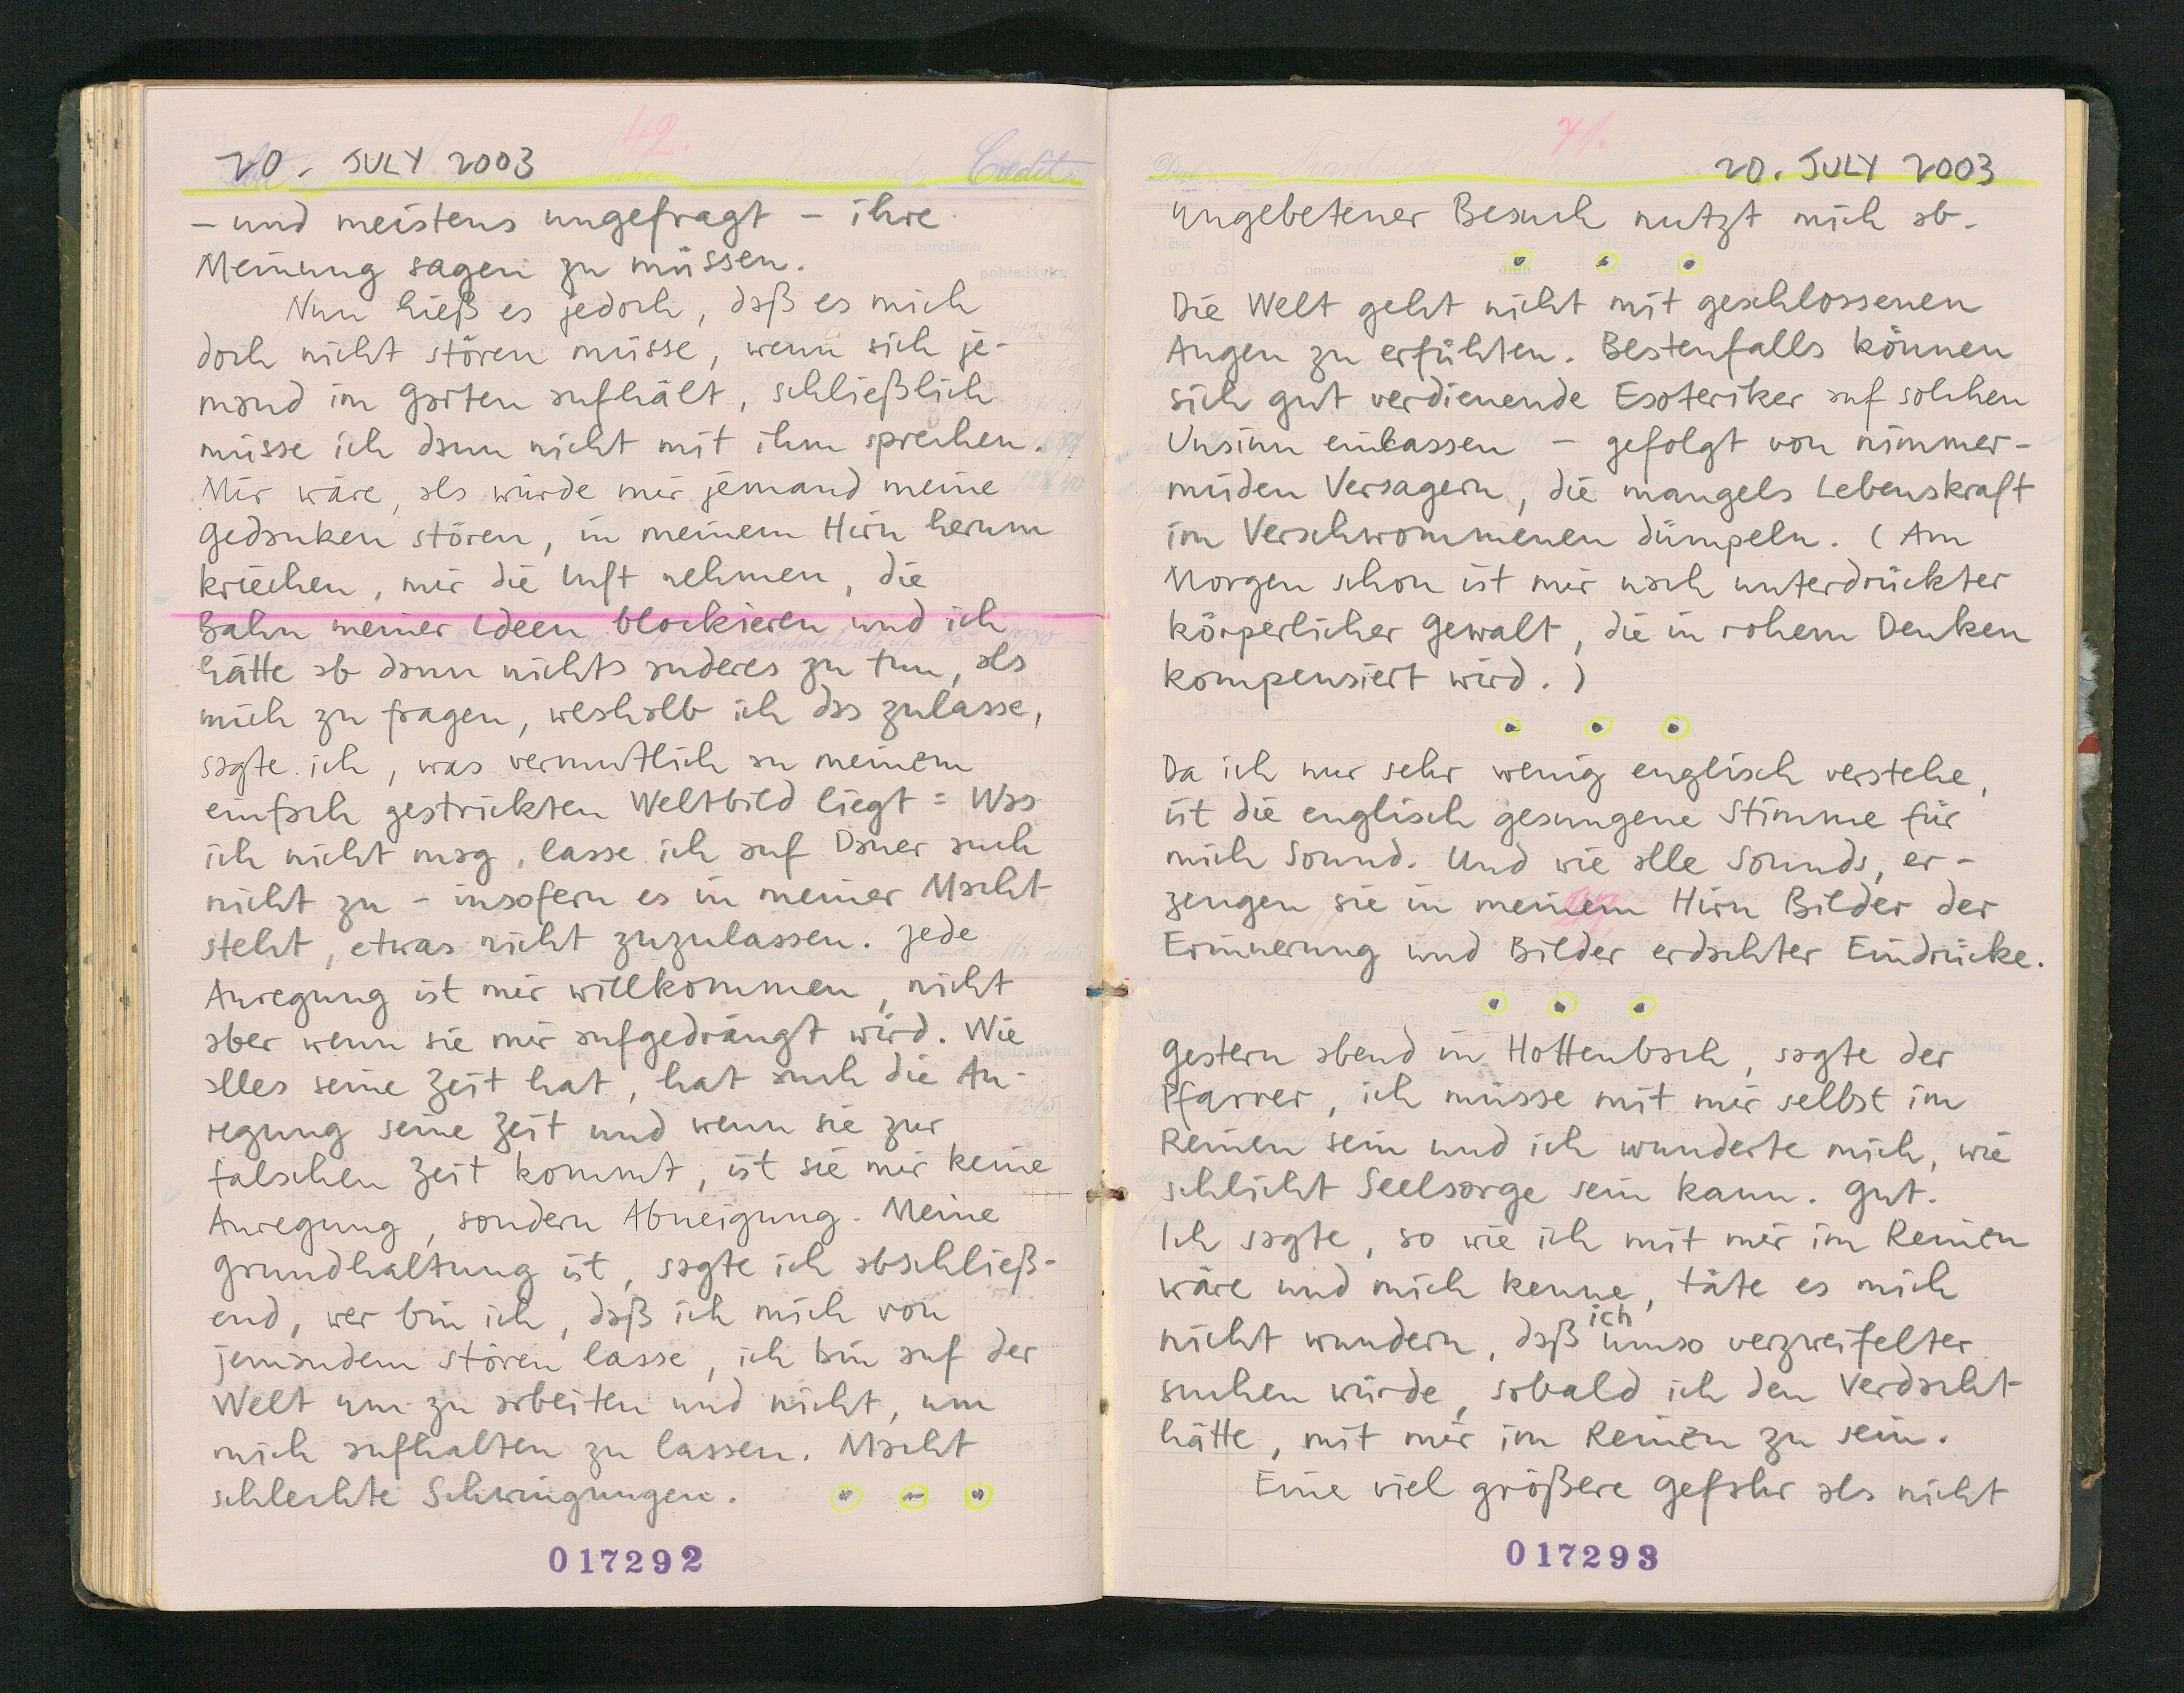 20. JULY 2003
– und meistens ungefragt – ihre
Meinung sagen zu müssen.
Nun hieß es jedoch, daß es mich
doch nicht stören müsse, wenn sich je-
mand im Garten aufhält, schließlich
müsse ich dann nicht mit ihm sprechen.
Mir wäre, als würde mir jemand meine
Gedanken stören, in meinem Hirn herum
kriechen, mir die Luft nehmen, die
Bahn meiner Ideen blockieren und ich
hätte ab dann nichts anderes zu tun, als
mich zu fragen, weshalb ich das zulasse,
sagte ich, was vermutlich an meinem
einfach gestrickten Weltbild liegt = Was
ich nicht mag, lasse ich auf Dauer auch
nicht zu – insofern es in meiner Macht
steht, etwas nicht zuzulassen. Jede
Anregung ist mir willkommen, nicht
aber wenn sie mir aufgedrängt wird. Wie
alles seine Zeit hat, hat auch die An-
regung seine Zeit und wenn sie zur
falschen Zeit kommt, ist sie mir keine
Anregung, sondern Abneigung. Meine
Grundhaltung ist, sagte ich abschließ-
end, wer bin ich, daß ich mich von
jemandem stören lasse, ich bin auf der
Welt um zu arbeiten und nicht, um
mich aufhalten zu lassen. Macht
schlechte Schwingungen.
017292
20. JULY 2003
Ungebetener Besuch nutzt mich ab.
Die Welt geht nicht mit geschlossenen
Augen zu erfühlen. Bestenfalls können
sich gut verdienende Esoteriker auf solchen
Unsinn einlassen – gefolgt von nimmer-
müden Versagern, die mangels Lebenskraft
im Verschwommenen dümpeln. (Am
Morgen schon ist mir nach unterdrückter
körperlicher Gewalt, die in rohem Denken
kompensiert wird.)
Da ich nur sehr wenig englisch verstehe,
ist die englisch gesungene Stimme für
mich Sound. Und wie alle Sounds, er-
zeugen sie in meinem Hirn Bilder der
Erinnerung und Bilder erdachter Eindrücke.
Gestern abend in Hottenbach, sagte der
Pfarrer, ich müsse mit mir selbst im
Reinen sein und ich wunderte mich, wie
schlicht Seelsorge sein kann. Gut.
Ich sagte, so wie ich mit mir im Reinen
wäre und mich kenne, täte es mich
nicht wundern, daß ich umso verzweifelter
suchen würde, sobald ich den Verdacht
hätte, mit mir im Reinen zu sein.
Eine viel größere Gefahr als nicht
017293